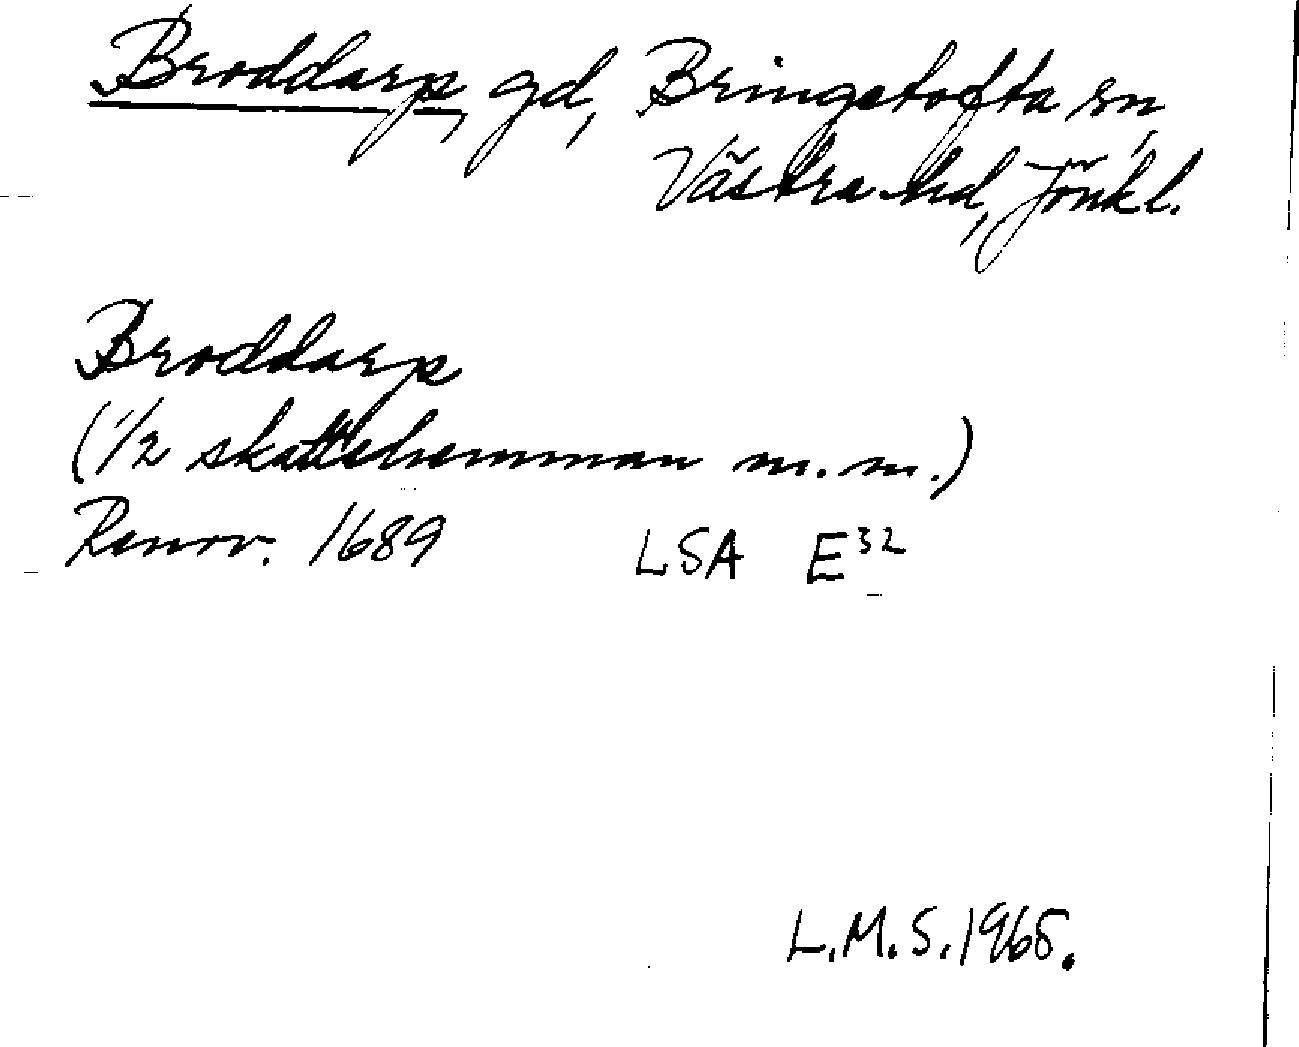 Broddarp, gd, Bringetofta sn,
Västra hd, Jönk l.
Broddarp
(1/2 skattehemman m.m.)
Renov. 1689 LSA E32
L.M.S. 1965.